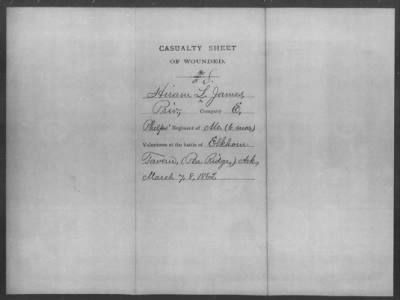 CASUALTY SHEET
OF WOUNDED.
Hiram L. James,
Priv, Company E,
Phelps' Regiment of Mo. (6 mos)
Volunteers at the battle of Elkhorn
Tavern, (Pea Ridge,) Ark,
March 7, 8, 1862